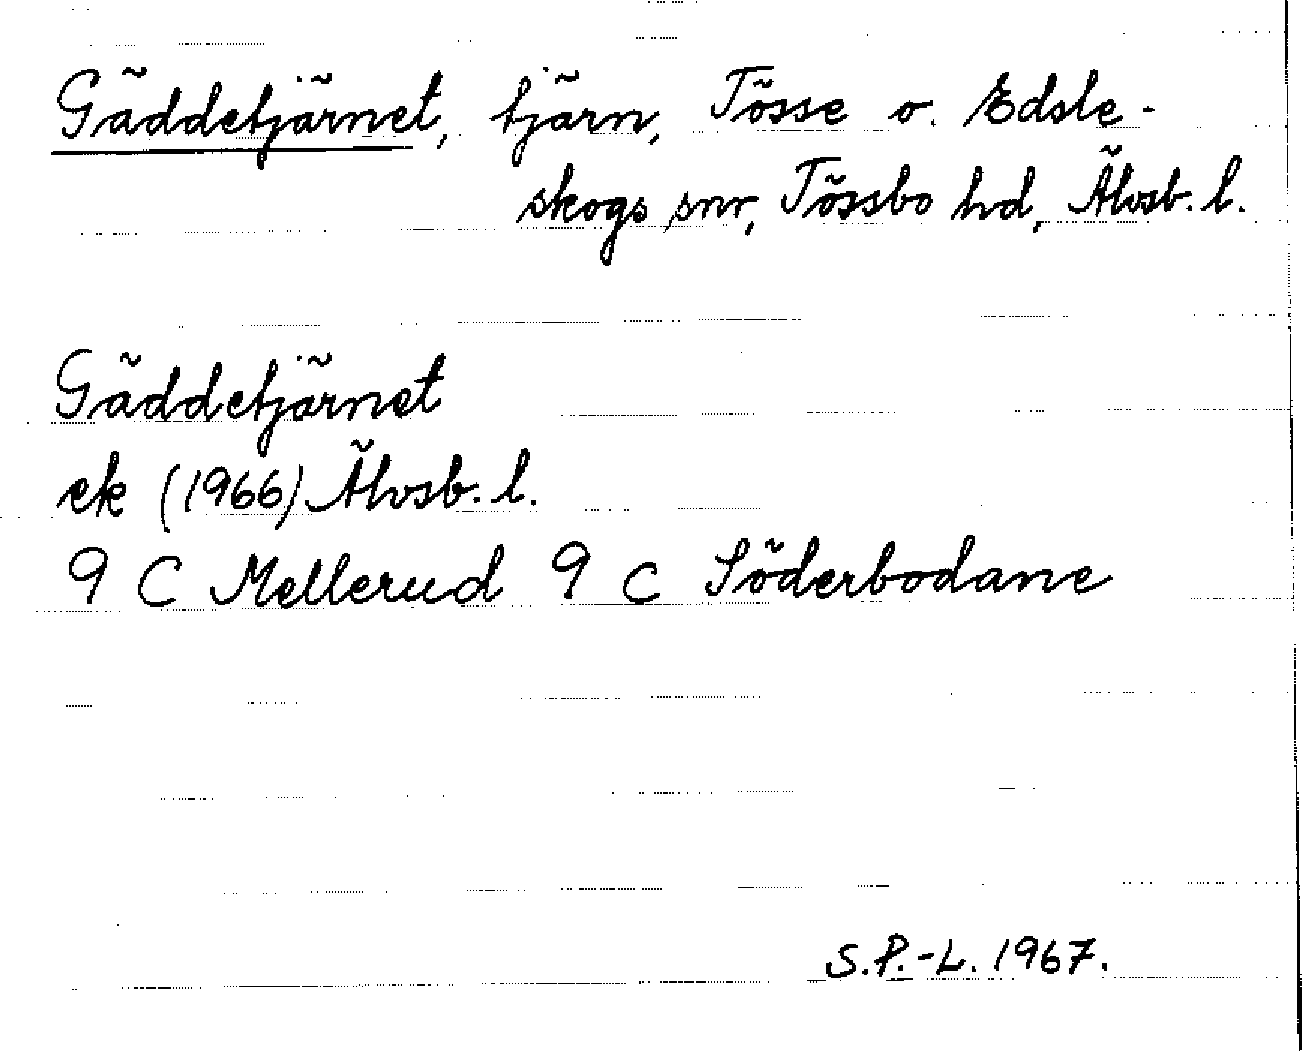 Gäddetjärnet, tjärn, Tösse o. Edsle-
skogs snr, Tössbo hd, Älvsb. l.
Gäddetjärnet
ek (1966) Älvsb. l.
9 C Mellerud 9 c Söderbodane
S.P.-L. 1967.